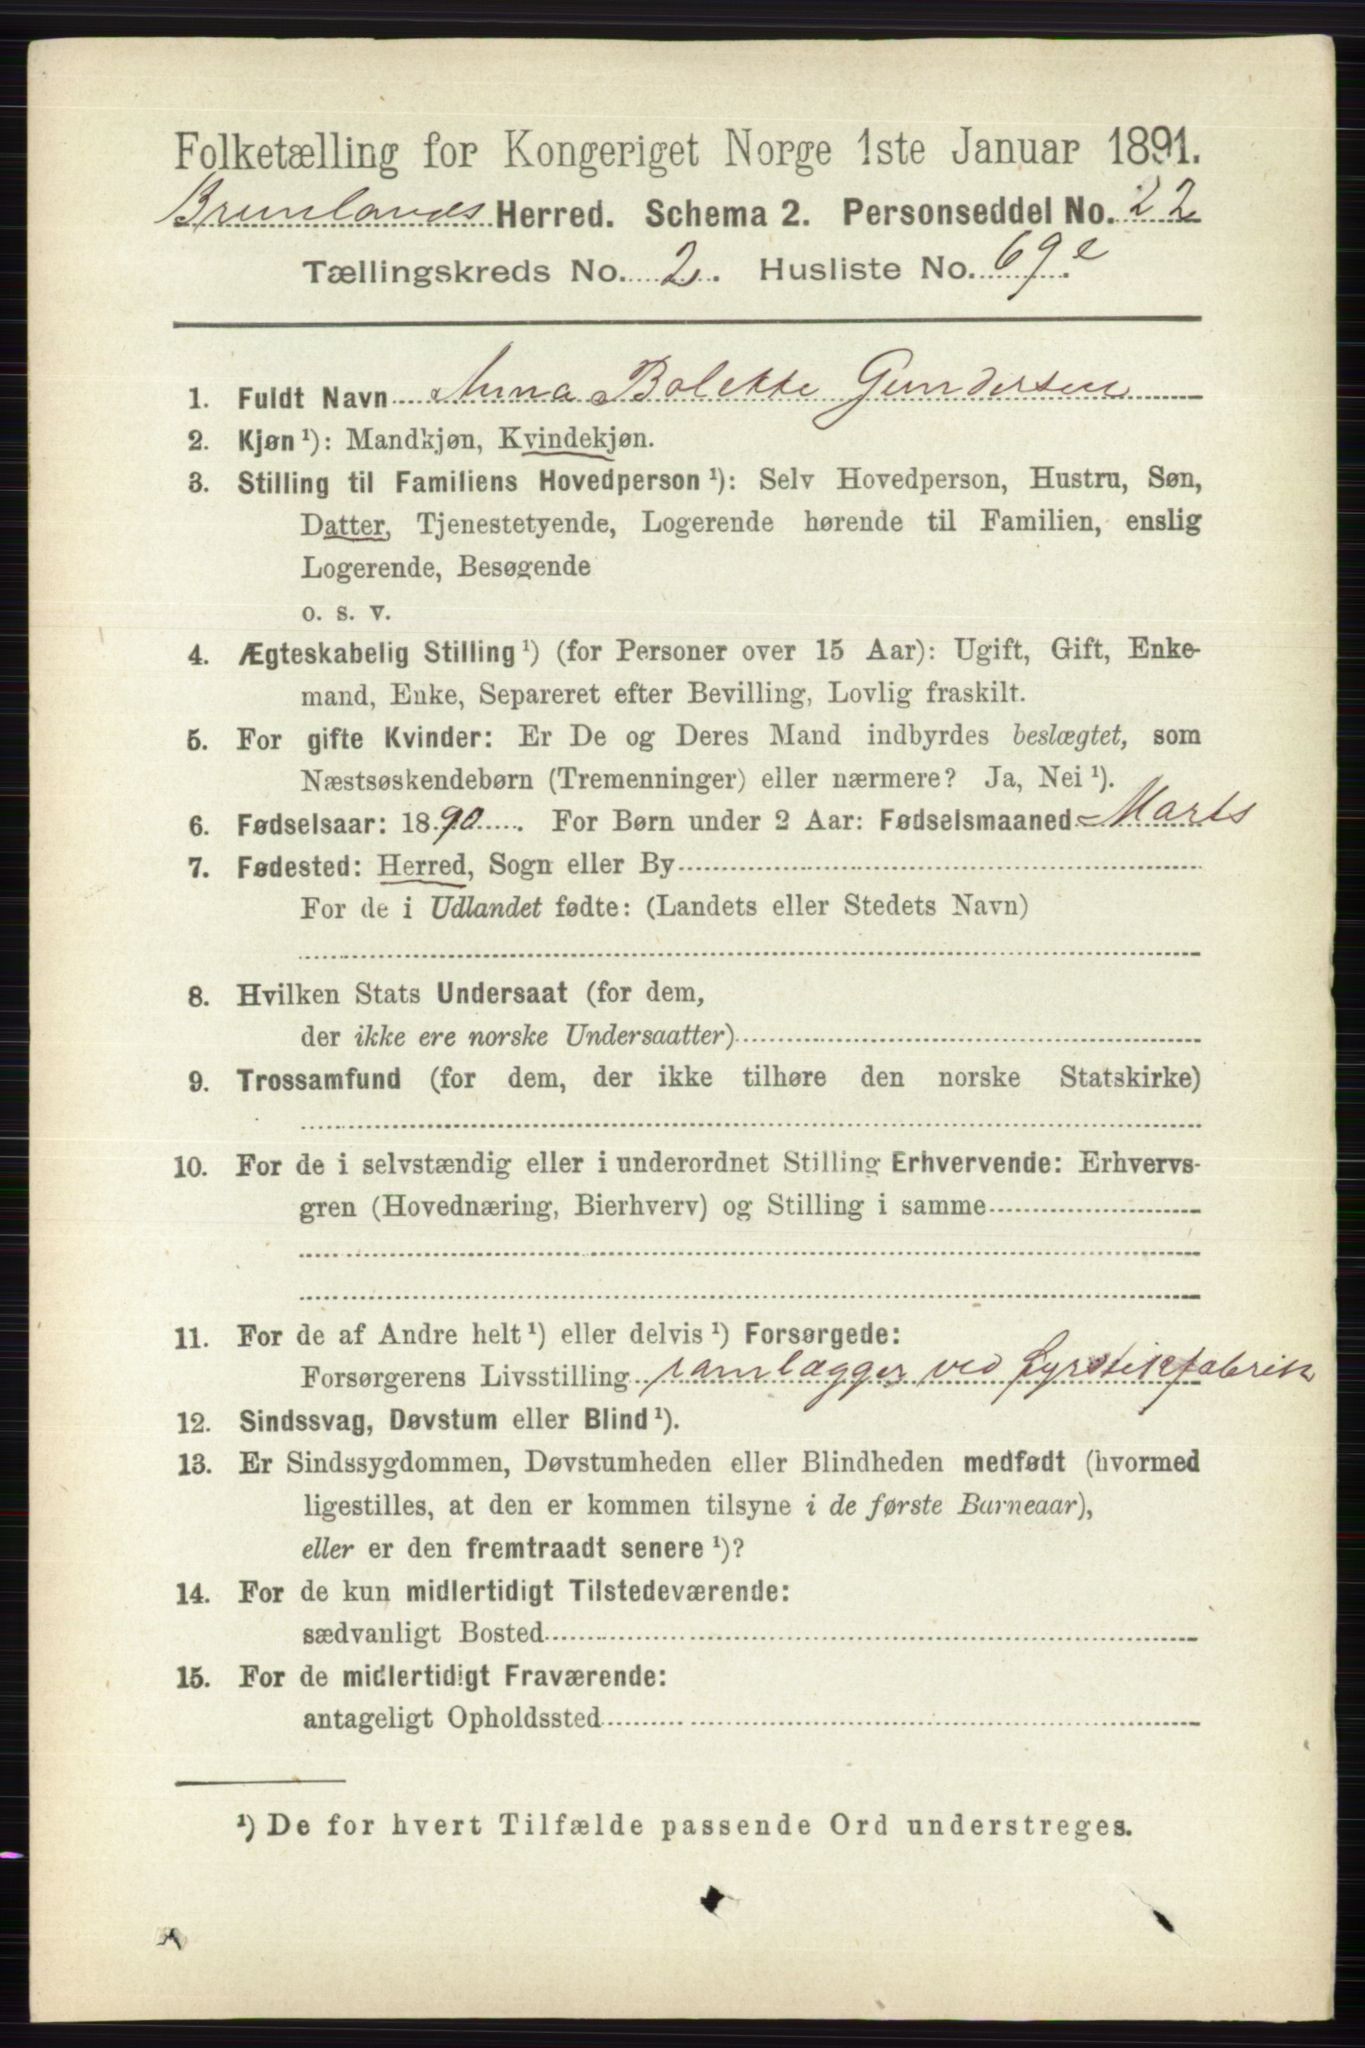 Folketælling for Kongeriget Norge 1ste Januar 1891.
Brunlanæs Herred. Schema 2. Personseddel No. 22
Tællingskreds No. 2. Husliste No. 69e
1. Fuldt Navn Anna Bolette Gundersen
2. Kjøn ¹): Mandkjøn, Kvindekjøn.
3. Stilling til Familiens Hovedperson ¹): Selv Hovedperson, Hustru, Søn,
Datter, Tjenestetyende, Logerende hørende til Familien, enslig
Logerende, Besøgende
o. s. v.
4. Ægteskabelig Stilling ¹) (for Personer over 15 Aar): Ugift, Gift, Enke-
mand, Enke, Separeret efter Bevilling, Lovlig fraskilt.
5. For gifte Kvinder: Er De og Deres Mand indbyrdes beslægtet, som
Næstsøskendebørn (Tremenninger) eller nærmere? Ja, Nei ¹).
6. Fødselsaar: 1890. For Børn under 2 Aar: Fødselsmaaned Marts
7. Fødested: Herred, Sogn eller By
For de i Udlandet fødte: (Landets eller Stedets Navn)
8. Hvilken Stats Undersaat (for dem,
der ikke ere norske Undersaatter)
9. Trossamfund (for dem, der ikke tilhøre den norske Statskirke)
10. For de i selvstændig eller i underordnet Stilling Erhvervende: Erhvervs-
gren (Hovednæring, Bierhverv) og Stilling i samme
11. For de af Andre helt ¹) eller delvis ¹) Forsørgede:
Forsørgerens Livsstilling ramlægger ved Fyrstikfabrik
12. Sindssvag, Døvstum eller Blind ¹).
13. Er Sindssygdommen, Døvstumheden eller Blindheden medfødt (hvormed
ligestilles, at den er kommen tilsyne i de første Barneaar),
eller er den fremtraadt senere ¹)?
14. For de kun midlertidigt Tilstedeværende:
sædvanligt Bosted
15. For de midlertidigt Fraværende:
antageligt Opholdssted
¹) De for hvert Tilfælde passende Ord understreges.